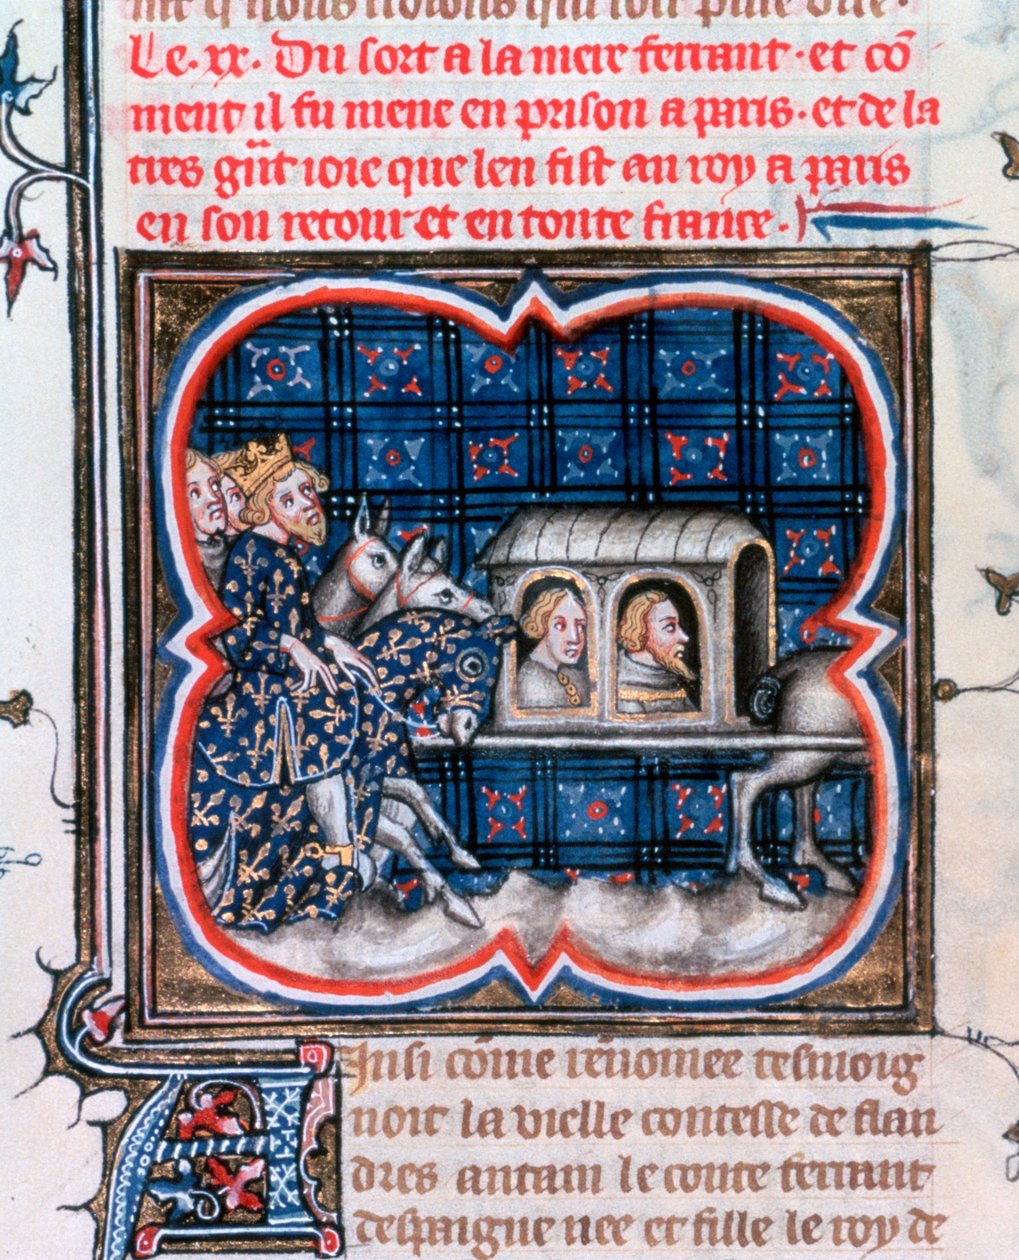 Le .xx. Du sort a la mere ferrant. et cõ
ment il fu mene en prison a paris. et de la
tres gñt ioie que len fist au roy a paris
en son retour et en toute france.
Ainsi cõme renõmee tesmoig
noit la vielle contesse de flan
dres antain le conte ferrant
despaigne nee et fille le roy de